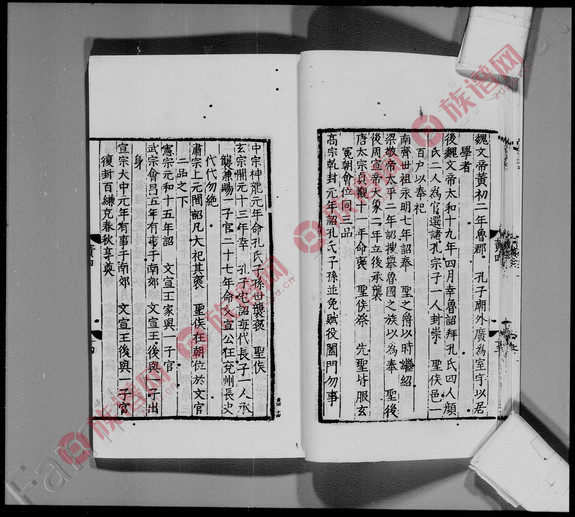 魏文帝黃初二年魯郡 孔子廟外廣為室宇以居
學者
後魏文帝太和十九年四月幸魯詔拜孔氏四人顏
氏二人為官選諸孔宗子一人封崇 聖侯邑一
百户以奉祀
南齊世祖永明七年詔奉 聖之爵以時繼紹
梁敬帝太平二年詔搜舉魯國之族以為奉 聖後
後周宣帝大象二年立後承襲
唐太宗貞觀十一年命褒 聖侯祭 先聖皆服玄
冕朝會位同三品
高宗乾封元年詔孔氏子孫並免賦役闔門勿事
中宗神龍元年命孔氏子孫世襲褒 聖侯
玄宗開元十三年幸 孔子宅詔每代長子一人承
襲兼賜一子官二十七年命文宣公任兗州長史
代代勿絶
肅宗上元
二品之下
憲宗元和十五年詔 文宣王家與一子官
武宗會昌五年有事于南郊 文宣王後與一子出
身
宣宗大中元年有事于南郊 文宣王後與一子官
復封百縑充春秋享奠
族谱网